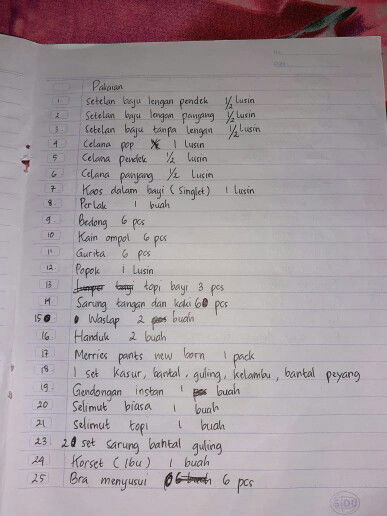 Pakaian
1 Setelan baju lengan pendek 1/2 Lusin
2 Setelan baju lengan panjang 1/2 Lusin
3 Setelan baju tanpa lengan 1/2 Lusin
4 Celana pop 1 Lusin
5 Celana pendek 1/2 Lusin
6 Celana panjang 1/2 Lusin
7 Kaos dalam bayi (Singlet) 1 Lusin
8 Perlak 1 buah
9 Bedong 6 pcs
10 Kain ompol 6 pcs
11 Gurita 6 pcs
12 Popok 1 Lusin
13 topi bayi 3 pcs
14 Sarung tangan dan kaki 6 pcs
15 Waslap 2 buah
16 Handuk 2 buah
17 Merries pants new born 1 pack
18 1 set kasur, bantal, guling, kelambu, bantal peyang
19 Gendongan instan 1 buah
20 Selimut biasa 1 buah
21 Selimut topi 1 buah
23 2 set sarung bantal guling
24 Korset (Ibu) 1 buah
25 Bra menyusui 6 pcs